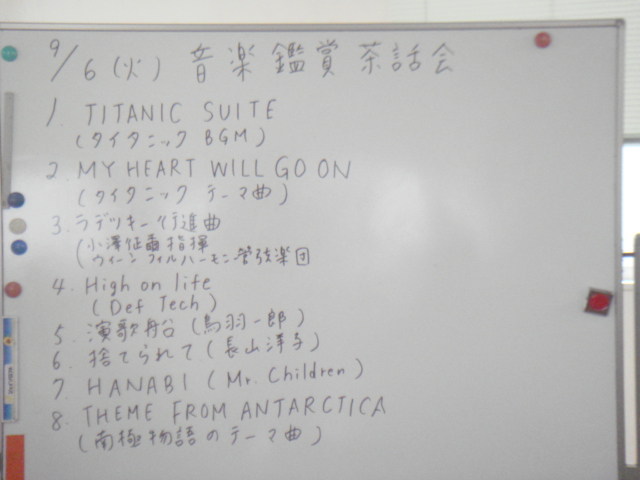 9/6(火) 音楽鑑賞茶話会
1. TITANIC SUITE
(タイタニック BGM)
2. MY HEART WILL GO ON
(タイタニック テーマ曲)
3. ラデツキー行進曲
(小澤征爾指揮
ウィーンフィルハーモニー管弦楽団
4. High on life
(Def Tech)
5. 演歌船 (鳥羽一郎)
6. 捨てられて (長山洋子)
7. HANABI (Mr. Children)
8. THEME FROM ANTARCTICA
(南極物語のテーマ曲)